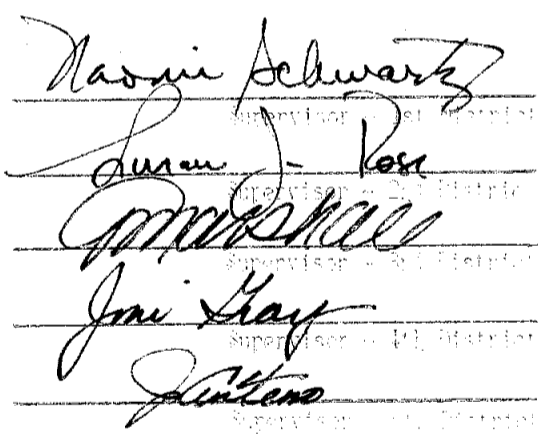 Naomi Schwartz
Supervisor - 1st District
Susan J. Rose
Supervisor - 2nd District
Marshall
Supervisor - 3rd District
Joni Gray
Supervisor - 4th District
Supervisor - District